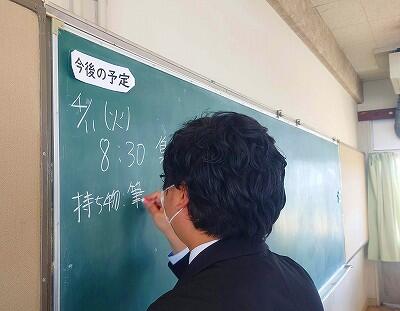 今後の予定
4/11(火)
8:30
持ち物:筆